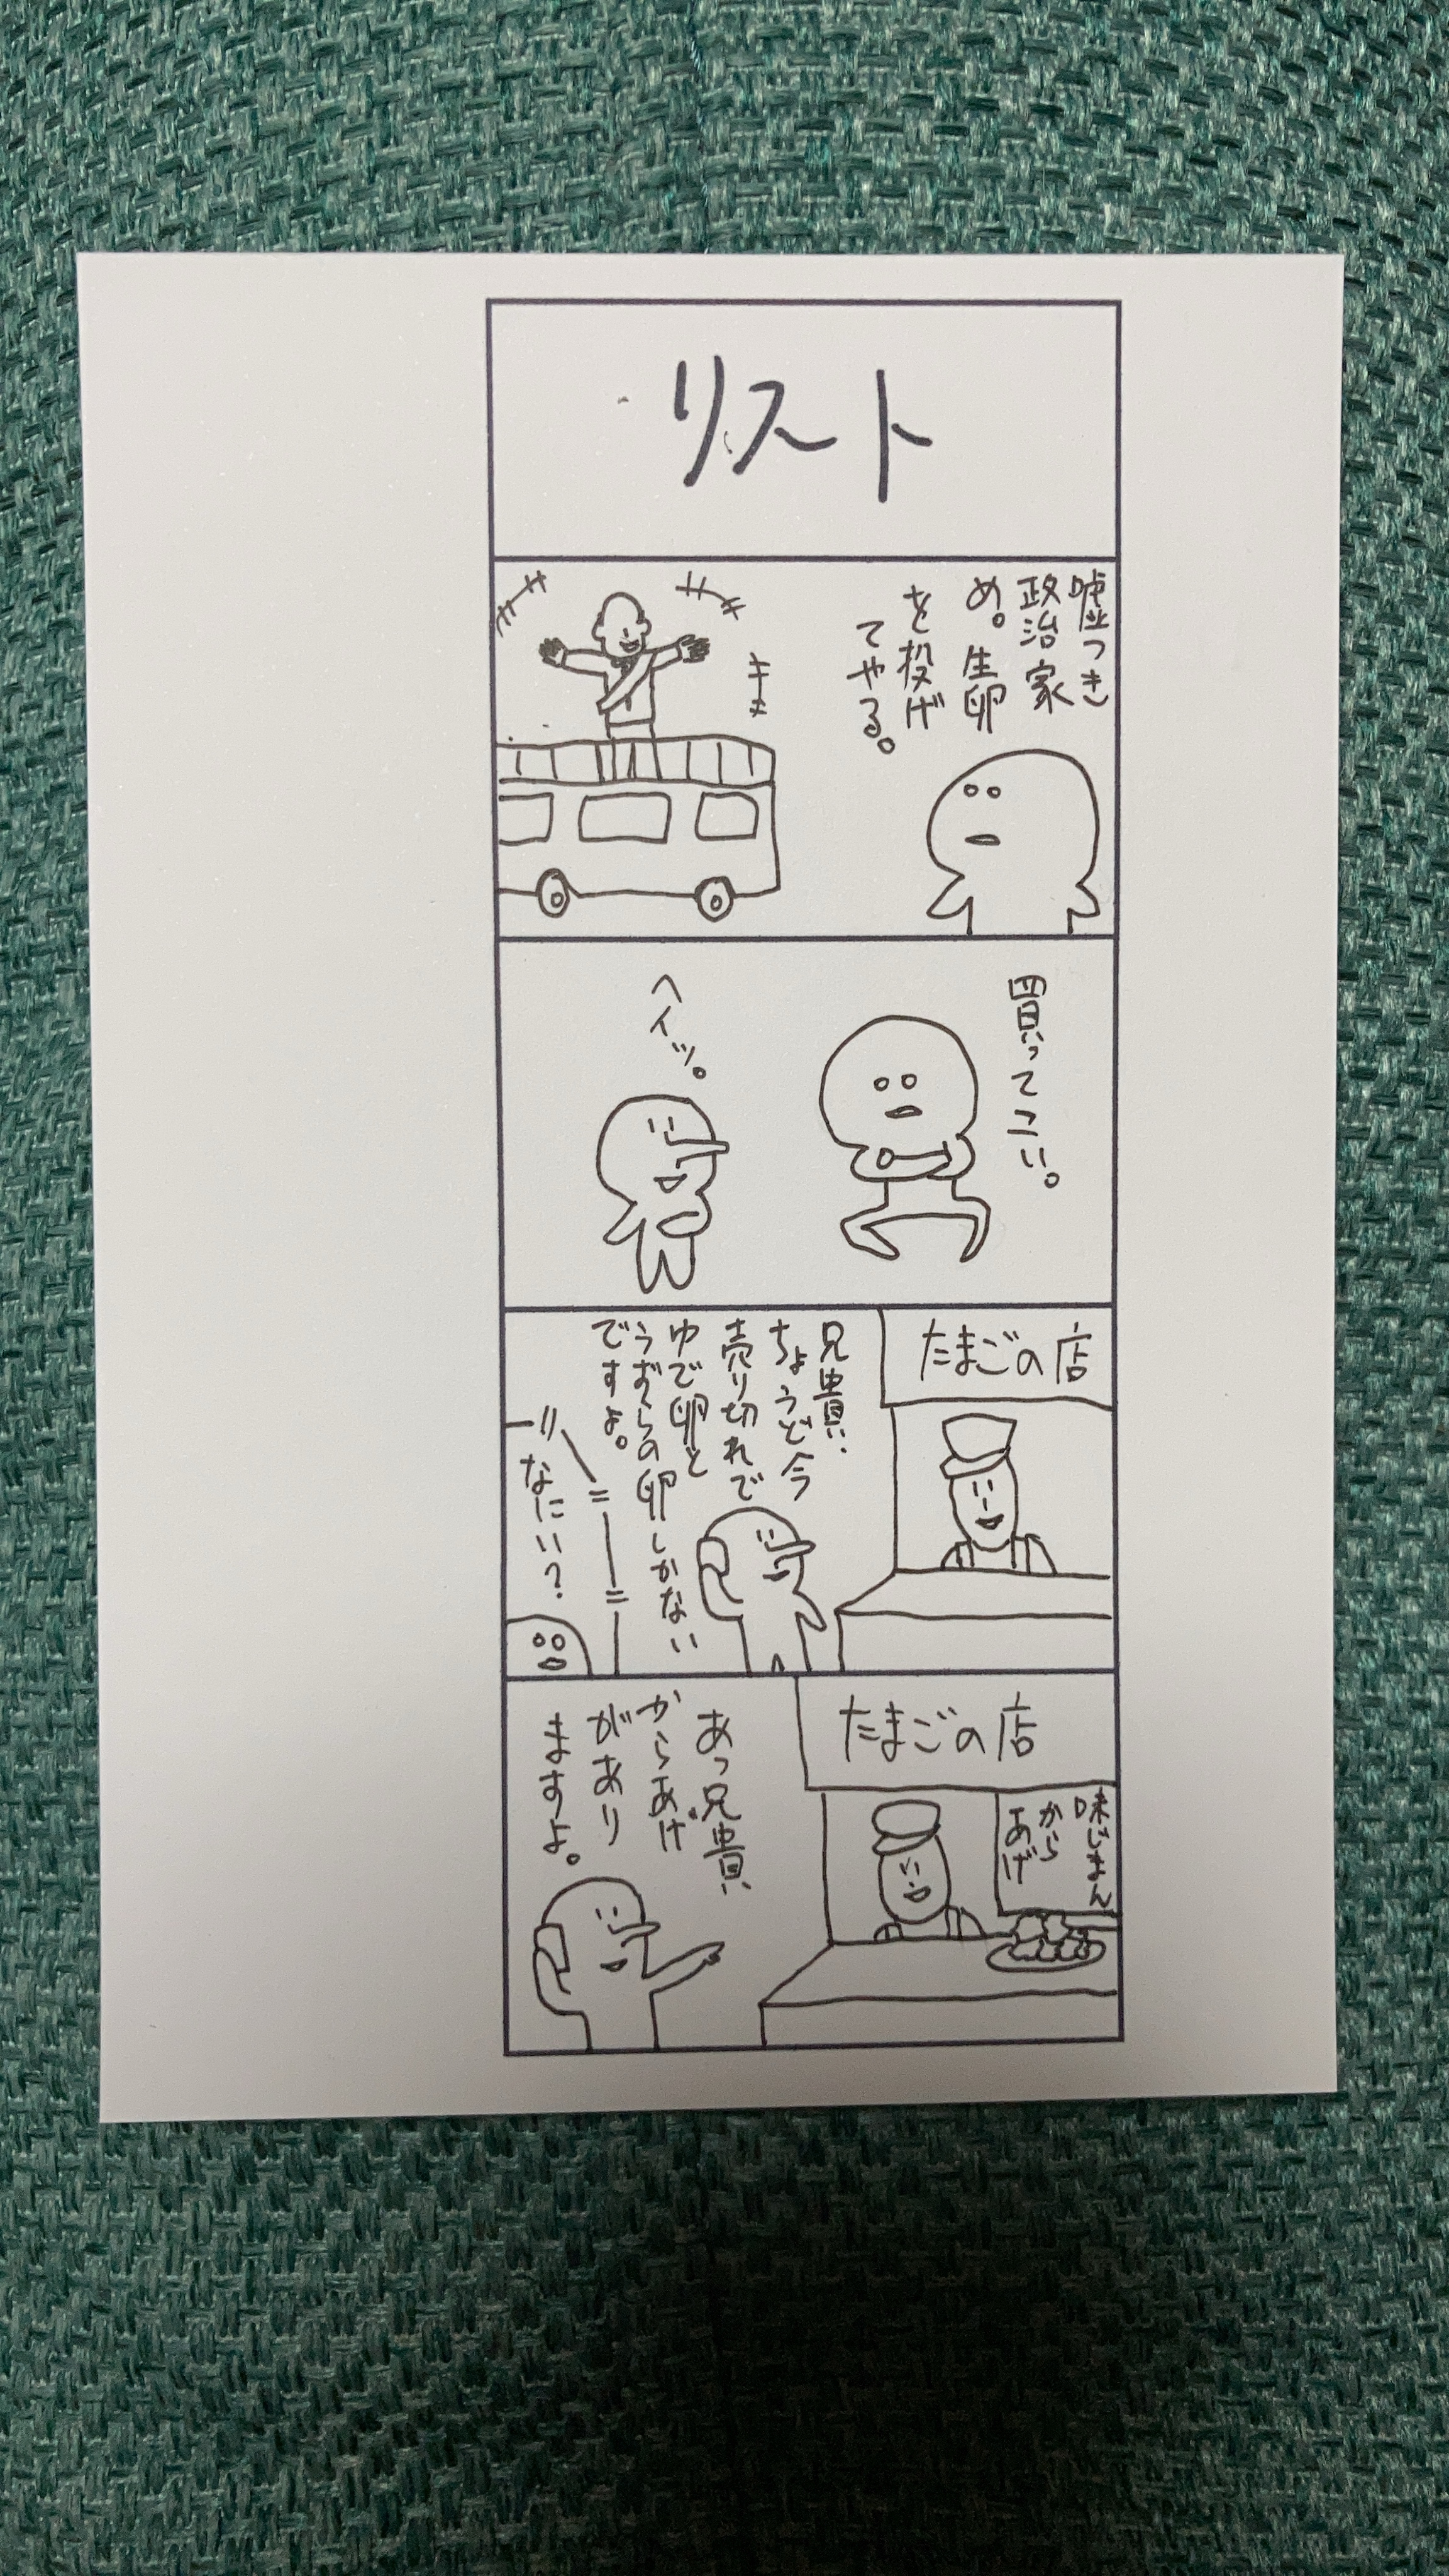 リスト
嘘つき
政治家
め。生卵
を投げ
てやる。
買ってこい。
ヘイッ。
たまごの店
兄貴、
ちょうど今
売り切れで
ゆで卵と
うずらの卵しかない
ですよ。
なにい?
たまごの店
味じまん
から
あげ
あっ兄貴、
からあげ
があり
ますよ。